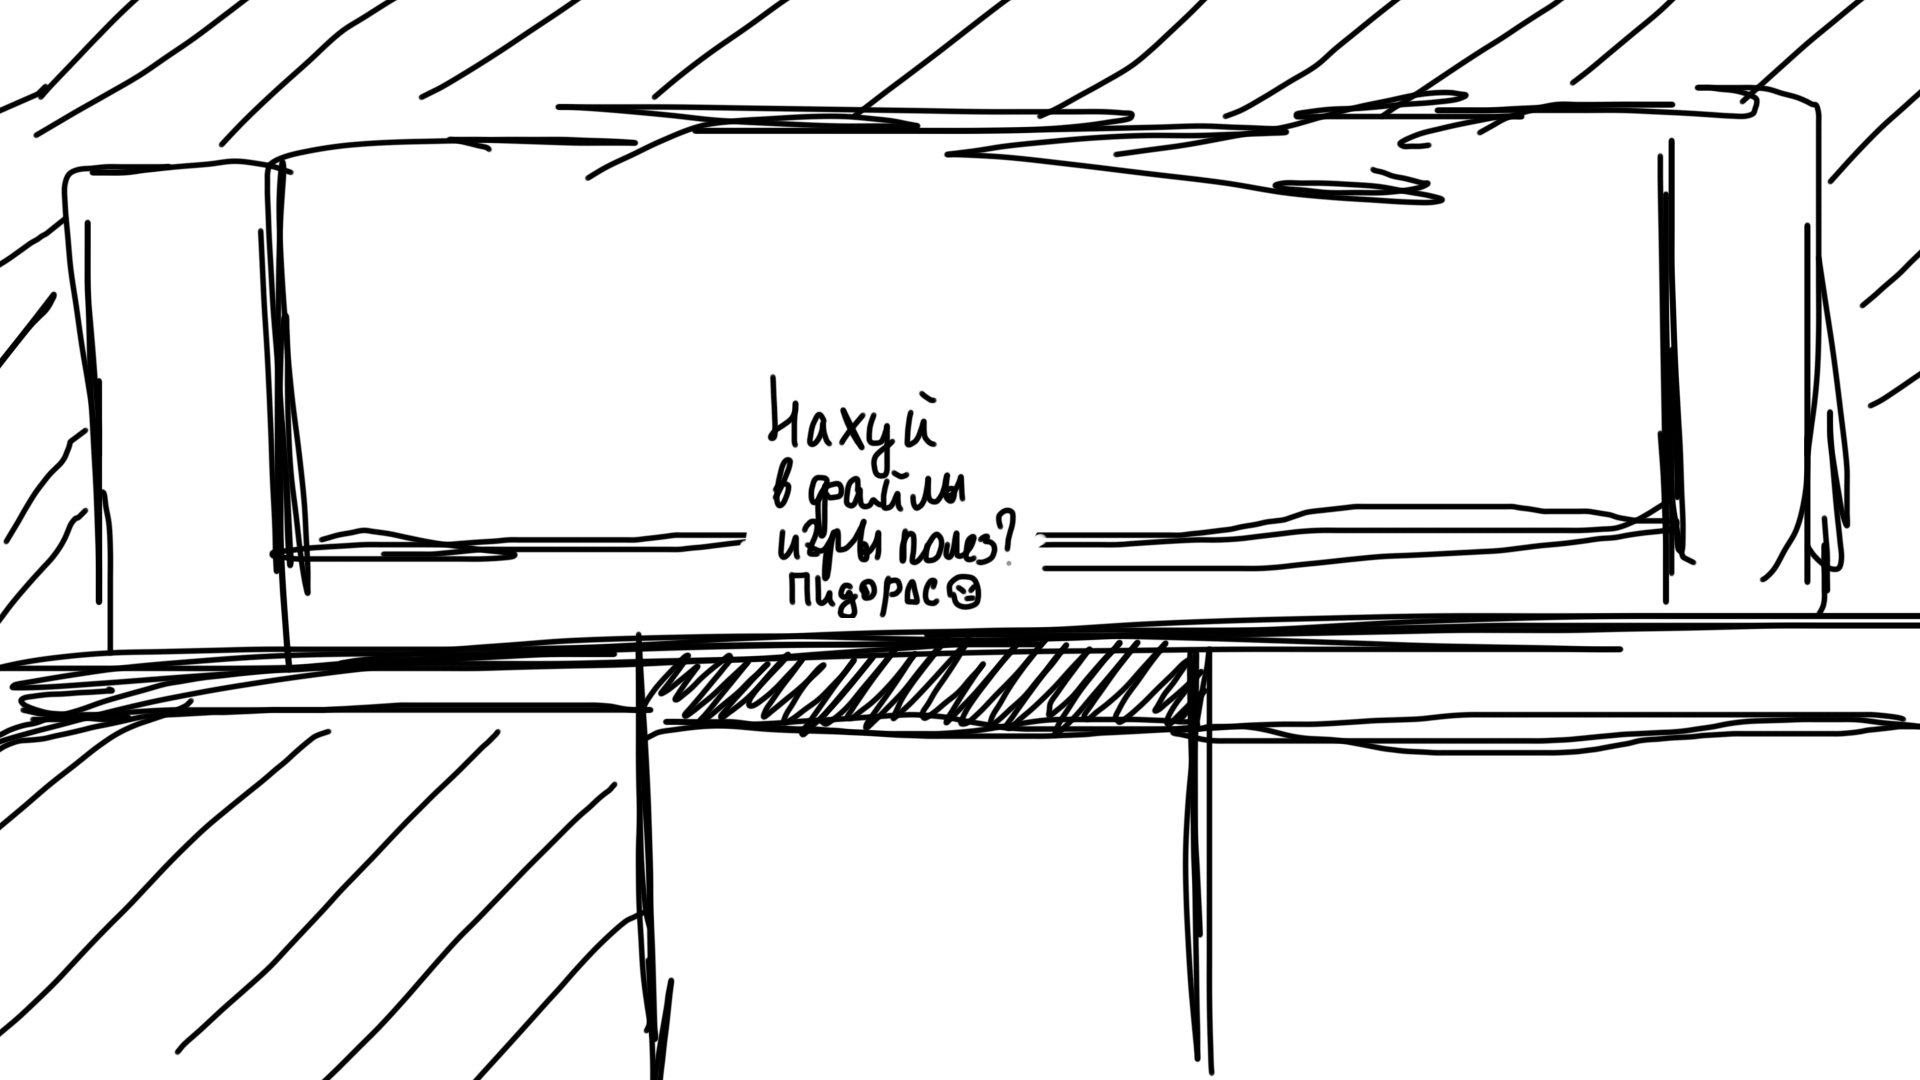 Нахуй
в файлы
игры полез?
Пидорас